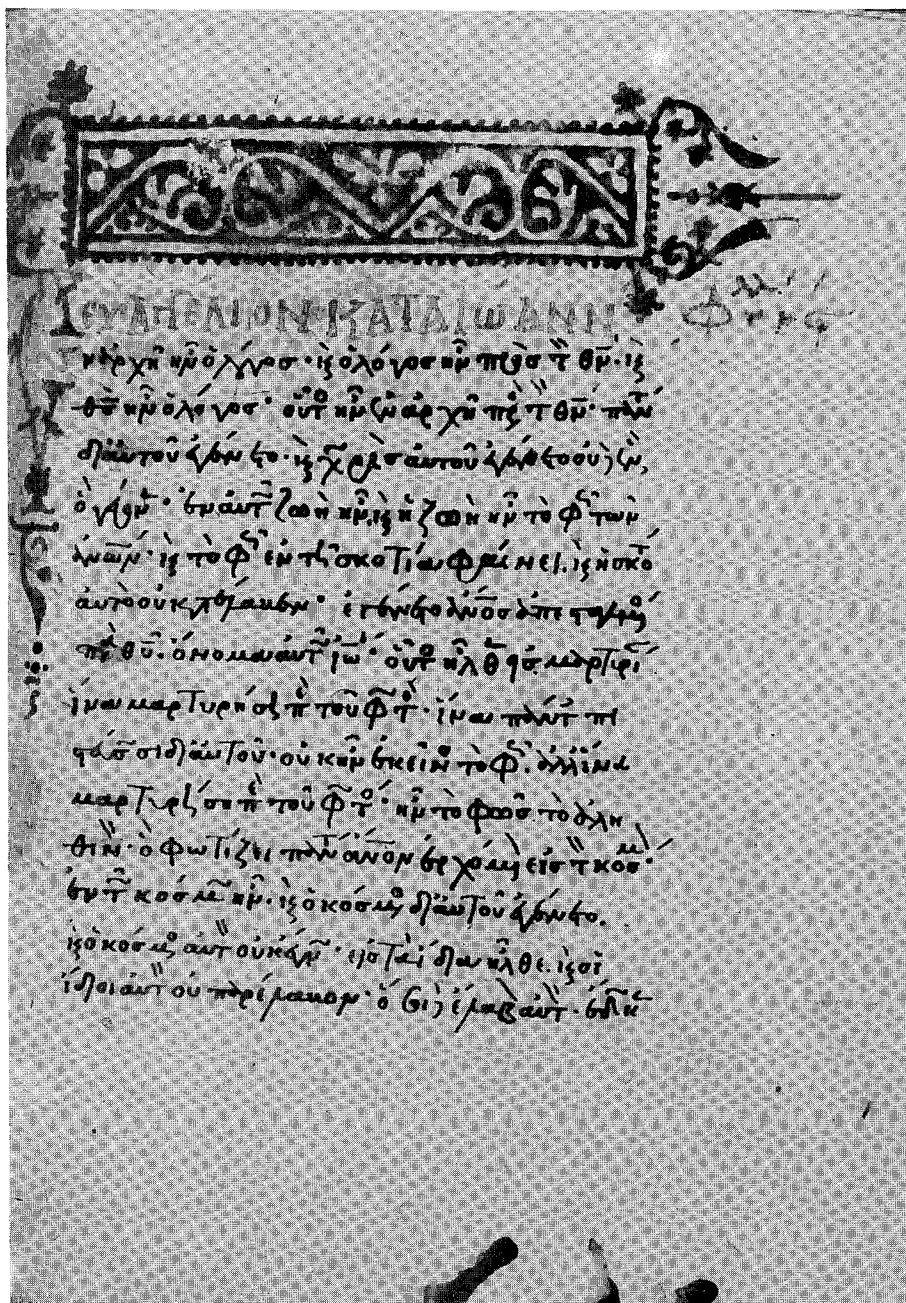 ΕΥΑΓΓΕΛΙΟΝ ΚΑΤΑ ΙΩΑΝΝΗ
ἀρχῇ ἦν ὁ λόγος· κ(αὶ) ὁ λόγος ἦν πρὸς τ(ὸν) θν· κ(αὶ)
θς ἦν ὁ λόγος· οὗτο(ς) ἦν ἐν ἀρχῇ πρ(ὸς) τ(ὸν) θν· πάντ(α)
δι αὐτοῦ ἐγένετο· κ(αὶ) χωρὶς αὐτοῦ ἐγένετο οὐδ(ὲ) ἕν,
ὃ γέγον(εν)· ἐν αὐτῶ ζωὴ ἦν, κ(αὶ) ἡ ζωὴ ἦν τὸ φῶ(ς) τῶν
ἀνων· κ(αὶ) τὸ φῶ(ς) ἐν τῆ σκοτία φαίνει. κ(αὶ) ἡ σκοτ(ία)
αὐτὸ οὐ κατέλαβεν· ἐγένετο ἀνος ἀπεσταλμ(ένος)
π(αρὰ) θυ. ὄνομα αὐτῶ ἰω· οὗτο(ς) ἦλθεν εἰς μαρτυρί(αν)
ἵνα μαρτυρήση π(ερὶ) τοῦ φωτό(ς)· ἵνα πάντ(ες) πι
στεύσωσι δι αὐτοῦ· οὐκ ἦν ἐκεῖνο(ς) τὸ φῶ(ς). ἀλλ ἵνα
μαρτυρήση π(ερὶ) τοῦ φωτό(ς)· ἦν τὸ φῶς τὸ ἀλη
θιν(ὸν)· ὃ φωτίζει πάντ(α) ἀνον ἐρχόμ(ενον) εἰς τ(ὸν) κόσμ(ον)·
ἐν τῶ κόσμω ἦν. κ(αὶ) ὁ κόσμο(ς) δι αὐτοῦ ἐγένετο.
κ(αὶ) ὁ κόσμο(ς) αὐτ(ὸν) οὐκ ἔγνω· εἰς τὰ ἴδια ἦλθε. κ(αὶ) οἱ
ἴδιοι αὐτ(ὸν) οὐ παρέλαβον· ὅσοι δ(ὲ) ἔλαβ(ον) αὐτ(όν)· ἔδωκ(εν)